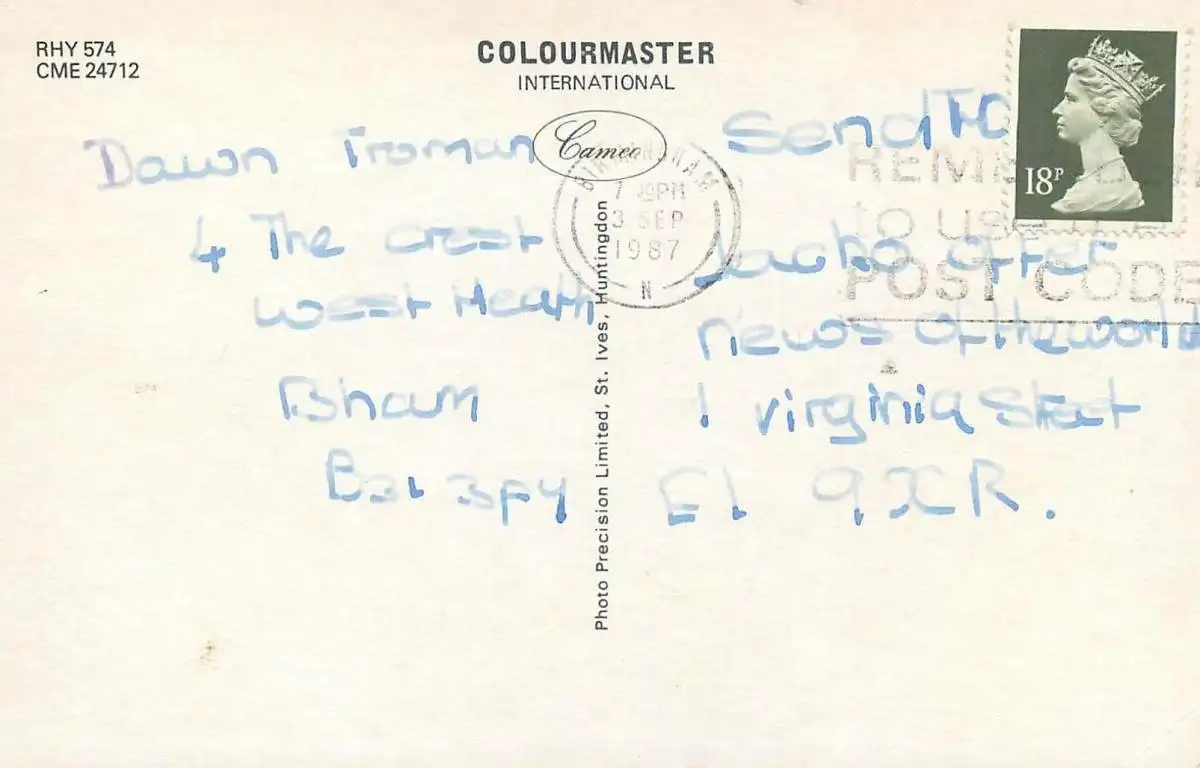 RHY 574
CME 24712
COLOURMASTER
INTERNATIONAL
Cameo
Photo Precision Limited, St. Ives, Huntingdon
Dawn Troman
4 The crest
West Heath
Bham
B31 3PY
BIRMINGHAM
7 PM
3 SEP
1987
N
REMEMBER
to use
POST CODE
18P
Send To
Jacko offer
News of the world
1 virginia Street
E1 9XR.